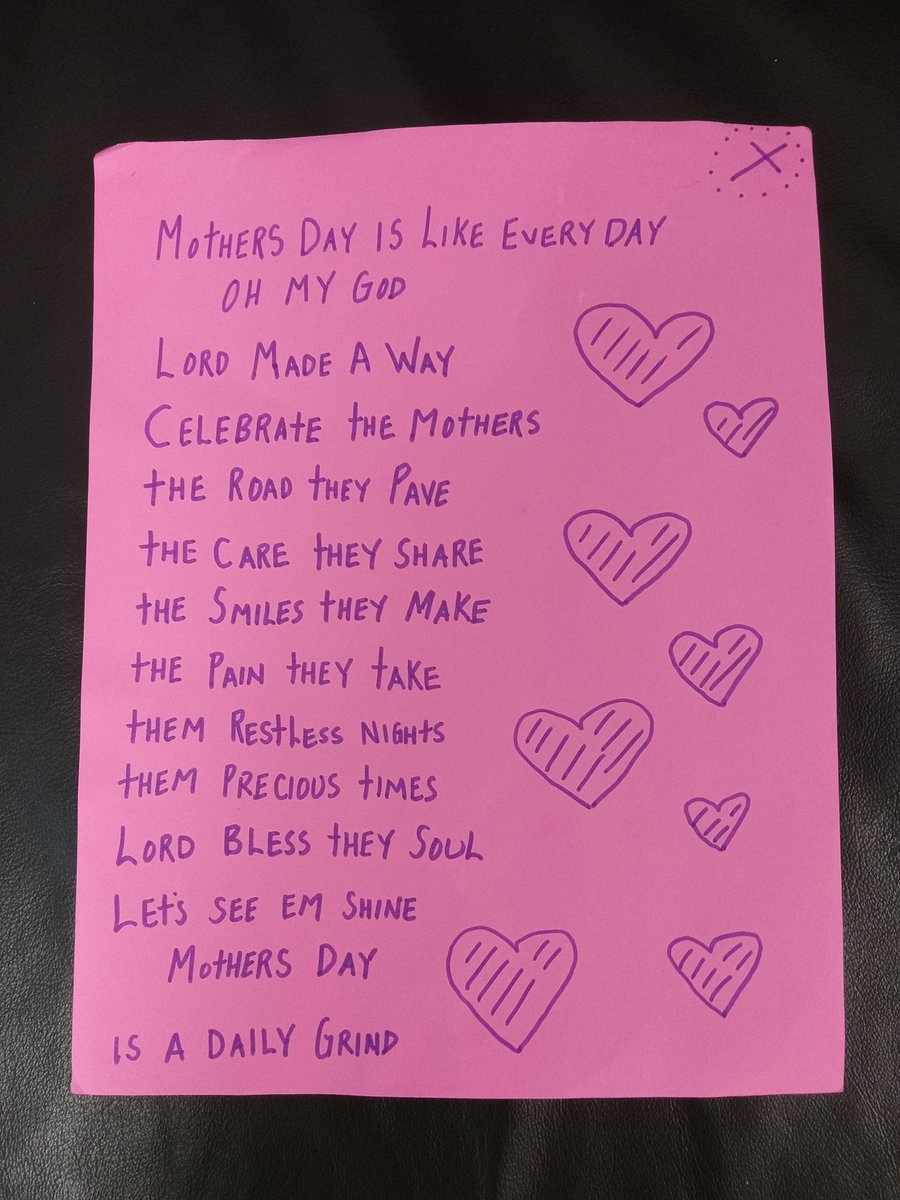 MOTHERS DAY IS LIKE EVERYDAY
OH MY GOD
LORD MADE A WAY
CELEBRATE THE MOTHERS
THE ROAD THEY PAVE
THE CARE THEY SHARE
THE SMILES THEY MAKE
THE PAIN THEY TAKE
THEM RESTLESS NIGHTS
THEM PRECIOUS TIMES
LORD BLESS THEY SOUL
LET'S SEE EM SHINE
MOTHERS DAY
IS A DAILY GRIND